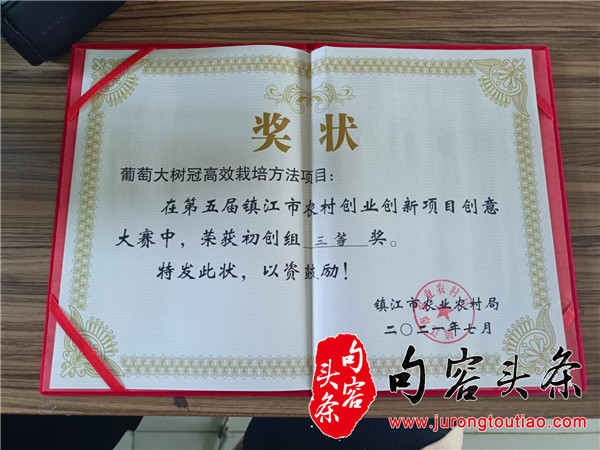 奖状
葡萄大树冠高效栽培方法项目：
在第五届镇江市农村创业创新项目创意
大赛中，荣获初创组三等奖。
特发此状，以资鼓励！
镇江市农业农村局
二〇二一年七月
句容头条
句容头条
www.jurongtoutiao.com